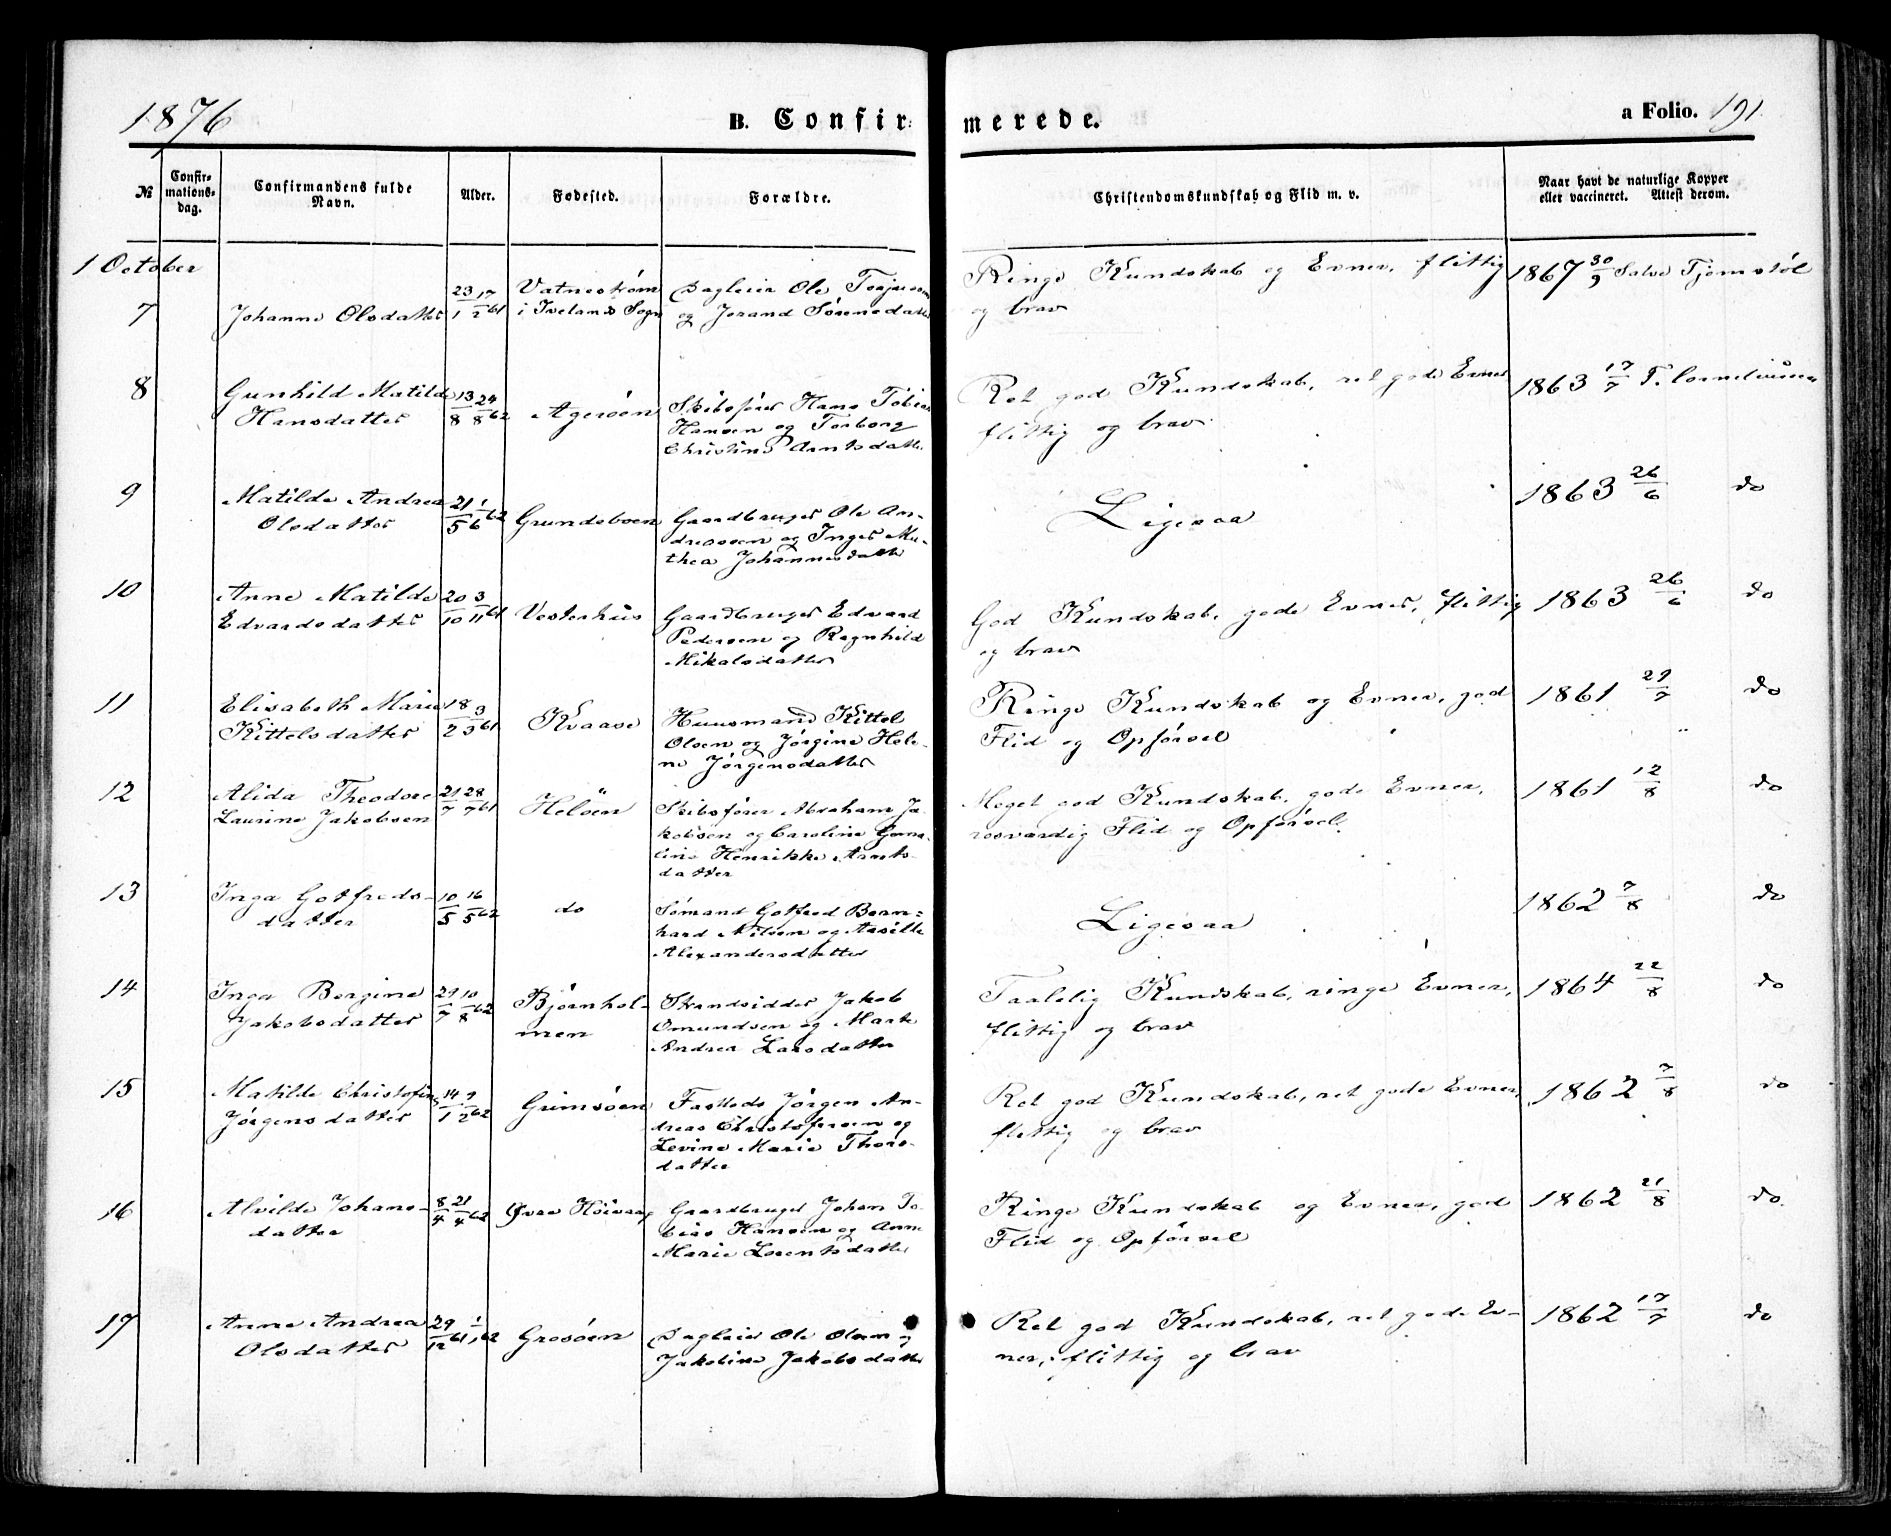 1876
B. Confir=
merede.
a Folio. 191.
№
Confir-
mations-
dag.
Confirmandens fulde
Navn.
Alder.
Fødested.
Forældre.
Christendomskundskab og Flid m. v.
Naar havt de naturlige Kopper
eller vaccineret. Attest derom.
1 October
7
Johanne Olsdatter
23/1 17/2 61
Vatnestrøm
i Ivelands Sogn
Dagleier Ole Torjussen
og Jorand Sørensdatter
Ringe Kundskab og Evner, flittig
og brav
1867 30/9 Salve Tjomstøl
8
Gunhild Matilde
Hansdatter
13/8 24/8 62
Agerøen
Skibsfører Hans Tobias
Hansen og Torborg
Christine Arntsdatter
Ret god Kundskab, ret gode Evner
flittig og brav
1863 17/7 T. Corneliussen
9
Matilde Andrea
Olsdatter
21/5 1/6 62
Grundsboen
Gaardbruger Ole An-
dreassen og Inger Ma-
thea Johannesdatter
Ligesaa
1863 26/6 do
10
Anne Matilde
Edvardsdatter
20/10 3/11 61
Vesterhus
Gaardbruger Edvard
Pedersen og Ragnhild
Mikalsdatter
God Kundskab, gode Evner, flittig
og brav
1863 26/6 do
11
Elisabeth Marie
Kittelsdatter
18/2 3/3 61
Kvaase
Huusmand Kittel
Olsen og Jørgine Hele-
ne Jørgensdatter
Ringe Kundskab og Evner, god
Flid og Opførsel
1861 29/7 do
12
Alida Theodore
Laurine Jakobsen
21/7 28/7 61
Heløen
Skibsfører Abraham Ja-
kobsen og Caroline
Henrikke Arnts-
datter
Meget god Kundskab, gode Evner,
rosværdig Flid og Opførsel.
1861 12/8 do
13
Inga Gotfreds-
datter
10/5 16/5 62
do
Sømand Gotfred Bern-
hard Nilsen og Aasille
Alexandersdatter
Ligesaa
1862 7/8 do
14
Inga Bergine
Jakobsdatter
29/7 10/8 62
Bjørnhol-
men
Strandsidder Jakob
Omundsen og Marte
Andrea Larsdatter
Taalelig Kundskab, ringe Evner,
flittig og brav
1864 22/8 do
15
Matilde Christofine
Jørgensdatter
14/1 9/2 62
Grimsøen
Jørgen An-
dreas Christofersen og
Levine Marie Thors-
datter
Ret god Kundskab, ret gode Evner,
flittig og brav
1862 7/8 do
16
Alvilde Johans-
datter
8/4 21/4 62
Øvre Høivaag
Gaardbruger Johan To-
bias Hansen og Anne
Marie Lorentsdatter
Ringe Kundskab og Evner, god
Flid og Opførsel
1862 21/8 do.
17
Anne Andrea
Olsdatter
29/12 61 1/1 62
Grosøen
Dagleier Ole Olsen og
Jakobine Jakobsdatter
Ret god Kundskab, ret gode Ev-
ner, flittig og brav
1862 17/7 do